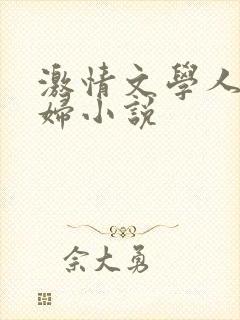 激情文學人
婦小說
余大勇